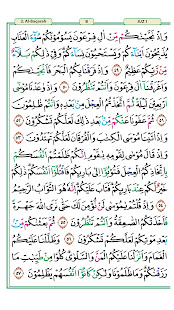 2. Al-Baqarah 8 JUZ 1
وَإِذْ نَجَّيْنَٰكُم مِّنْ ءَالِ فِرْعَوْنَ يَسُومُونَكُمْ سُوٓءَ ٱلْعَذَابِ
يُذَبِّحُونَ أَبْنَآءَكُمْ وَيَسْتَحْيُونَ نِسَآءَكُمْ وَفِى ذَٰلِكُم بَلَآءٌ
مِّن رَّبِّكُمْ عَظِيمٌ ٤٩ وَإِذْ فَرَقْنَا بِكُمُ ٱلْبَحْرَ فَأَنجَيْنَٰكُمْ
وَأَغْرَقْنَآ ءَالَ فِرْعَوْنَ وَأَنتُمْ تَنظُرُونَ ٥٠ وَإِذْ وَٰعَدْنَا مُوسَىٰٓ
أَرْبَعِينَ لَيْلَةً ثُمَّ ٱتَّخَذْتُمُ ٱلْعِجْلَ مِنۢ بَعْدِهِۦ وَأَنتُمْ ظَٰلِمُونَ
٥١ ثُمَّ عَفَوْنَا عَنكُم مِّنۢ بَعْدِ ذَٰلِكَ لَعَلَّكُمْ تَشْكُرُونَ ٥٢
وَإِذْ ءَاتَيْنَا مُوسَى ٱلْكِتَٰبَ وَٱلْفُرْقَانَ لَعَلَّكُمْ تَهْتَدُونَ
٥٣ وَإِذْ قَالَ مُوسَىٰ لِقَوْمِهِۦ يَٰقَوْمِ إِنَّكُمْ ظَلَمْتُمْ أَنفُسَكُم
بِٱتِّخَاذِكُمُ ٱلْعِجْلَ فَتُوبُوٓا۟ إِلَىٰ بَارِئِكُمْ فَٱقْتُلُوٓا۟ أَنفُسَكُمْ ذَٰلِكُمْ
خَيْرٌ لَّكُمْ عِندَ بَارِئِكُمْ فَتَابَ عَلَيْكُمْ إِنَّهُۥ هُوَ ٱلتَّوَّابُ ٱلرَّحِيمُ
٥٤ وَإِذْ قُلْتُمْ يَٰمُوسَىٰ لَن نُّؤْمِنَ لَكَ حَتَّىٰ نَرَى ٱللَّهَ جَهْرَةً
فَأَخَذَتْكُمُ ٱلصَّٰعِقَةُ وَأَنتُمْ تَنظُرُونَ ٥٥ ثُمَّ بَعَثْنَٰكُم مِّنۢ
بَعْدِ مَوْتِكُمْ لَعَلَّكُمْ تَشْكُرُونَ ٥٦ وَظَلَّلْنَا عَلَيْكُمُ
ٱلْغَمَامَ وَأَنزَلْنَا عَلَيْكُمُ ٱلْمَنَّ وَٱلسَّلْوَىٰ كُلُوا۟ مِن طَيِّبَٰتِ مَا
رَزَقْنَٰكُمْ وَمَا ظَلَمُونَا وَلَٰكِن كَانُوٓا۟ أَنفُسَهُمْ يَظْلِمُونَ ٥٧